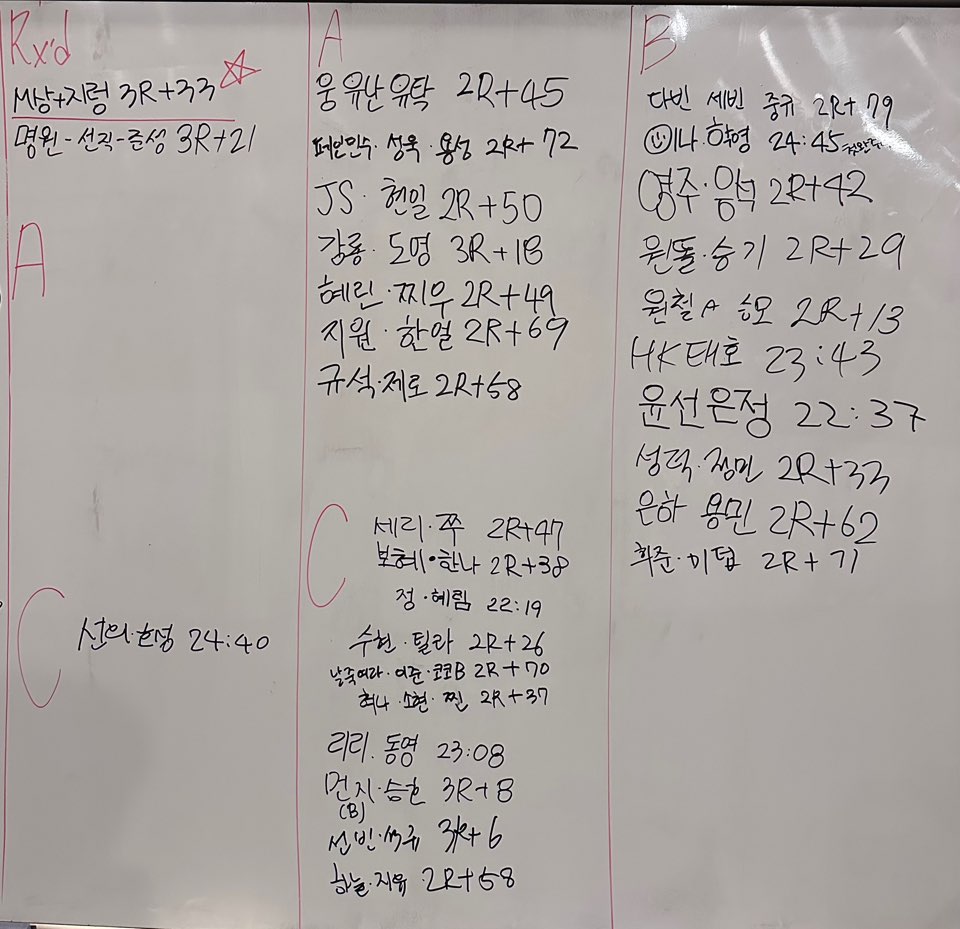 Rx'd
M상+지렁 3R+33
명원-선직-준성 3R+21
A
C
선의·효성 24:40
A
웅 유난 유탁 2R+45
페인민수·성욱·용성 2R+72
JS·현일 2R+50
강룡·도영 3R+18
혜린·찌우 2R+49
지원·한얼 2R+69
규석·제로 2R+58
C
세리·쭈 2R+47
보혜·한나 2R+38
정·혜림 22:19
수현·틸라 2R+26
날죽여라·여준·코코B 2R+70
혀나·소현·찐 2R+37
리리·동영 23:08
먼지·승호 3R+8
(B)
선빈·쓱규 3R+6
하늘·지유 2R+58
B
다빈 세빈 중규 2R+79
이나·학영 24:45
영주·음석 2R+42
원돌·승기 2R+29
원철A 2R+13
HK태호 23:43
윤선은정 22:37
성덕·정민 2R+33
은하 용민 2R+62
희준·미텁 2R+71